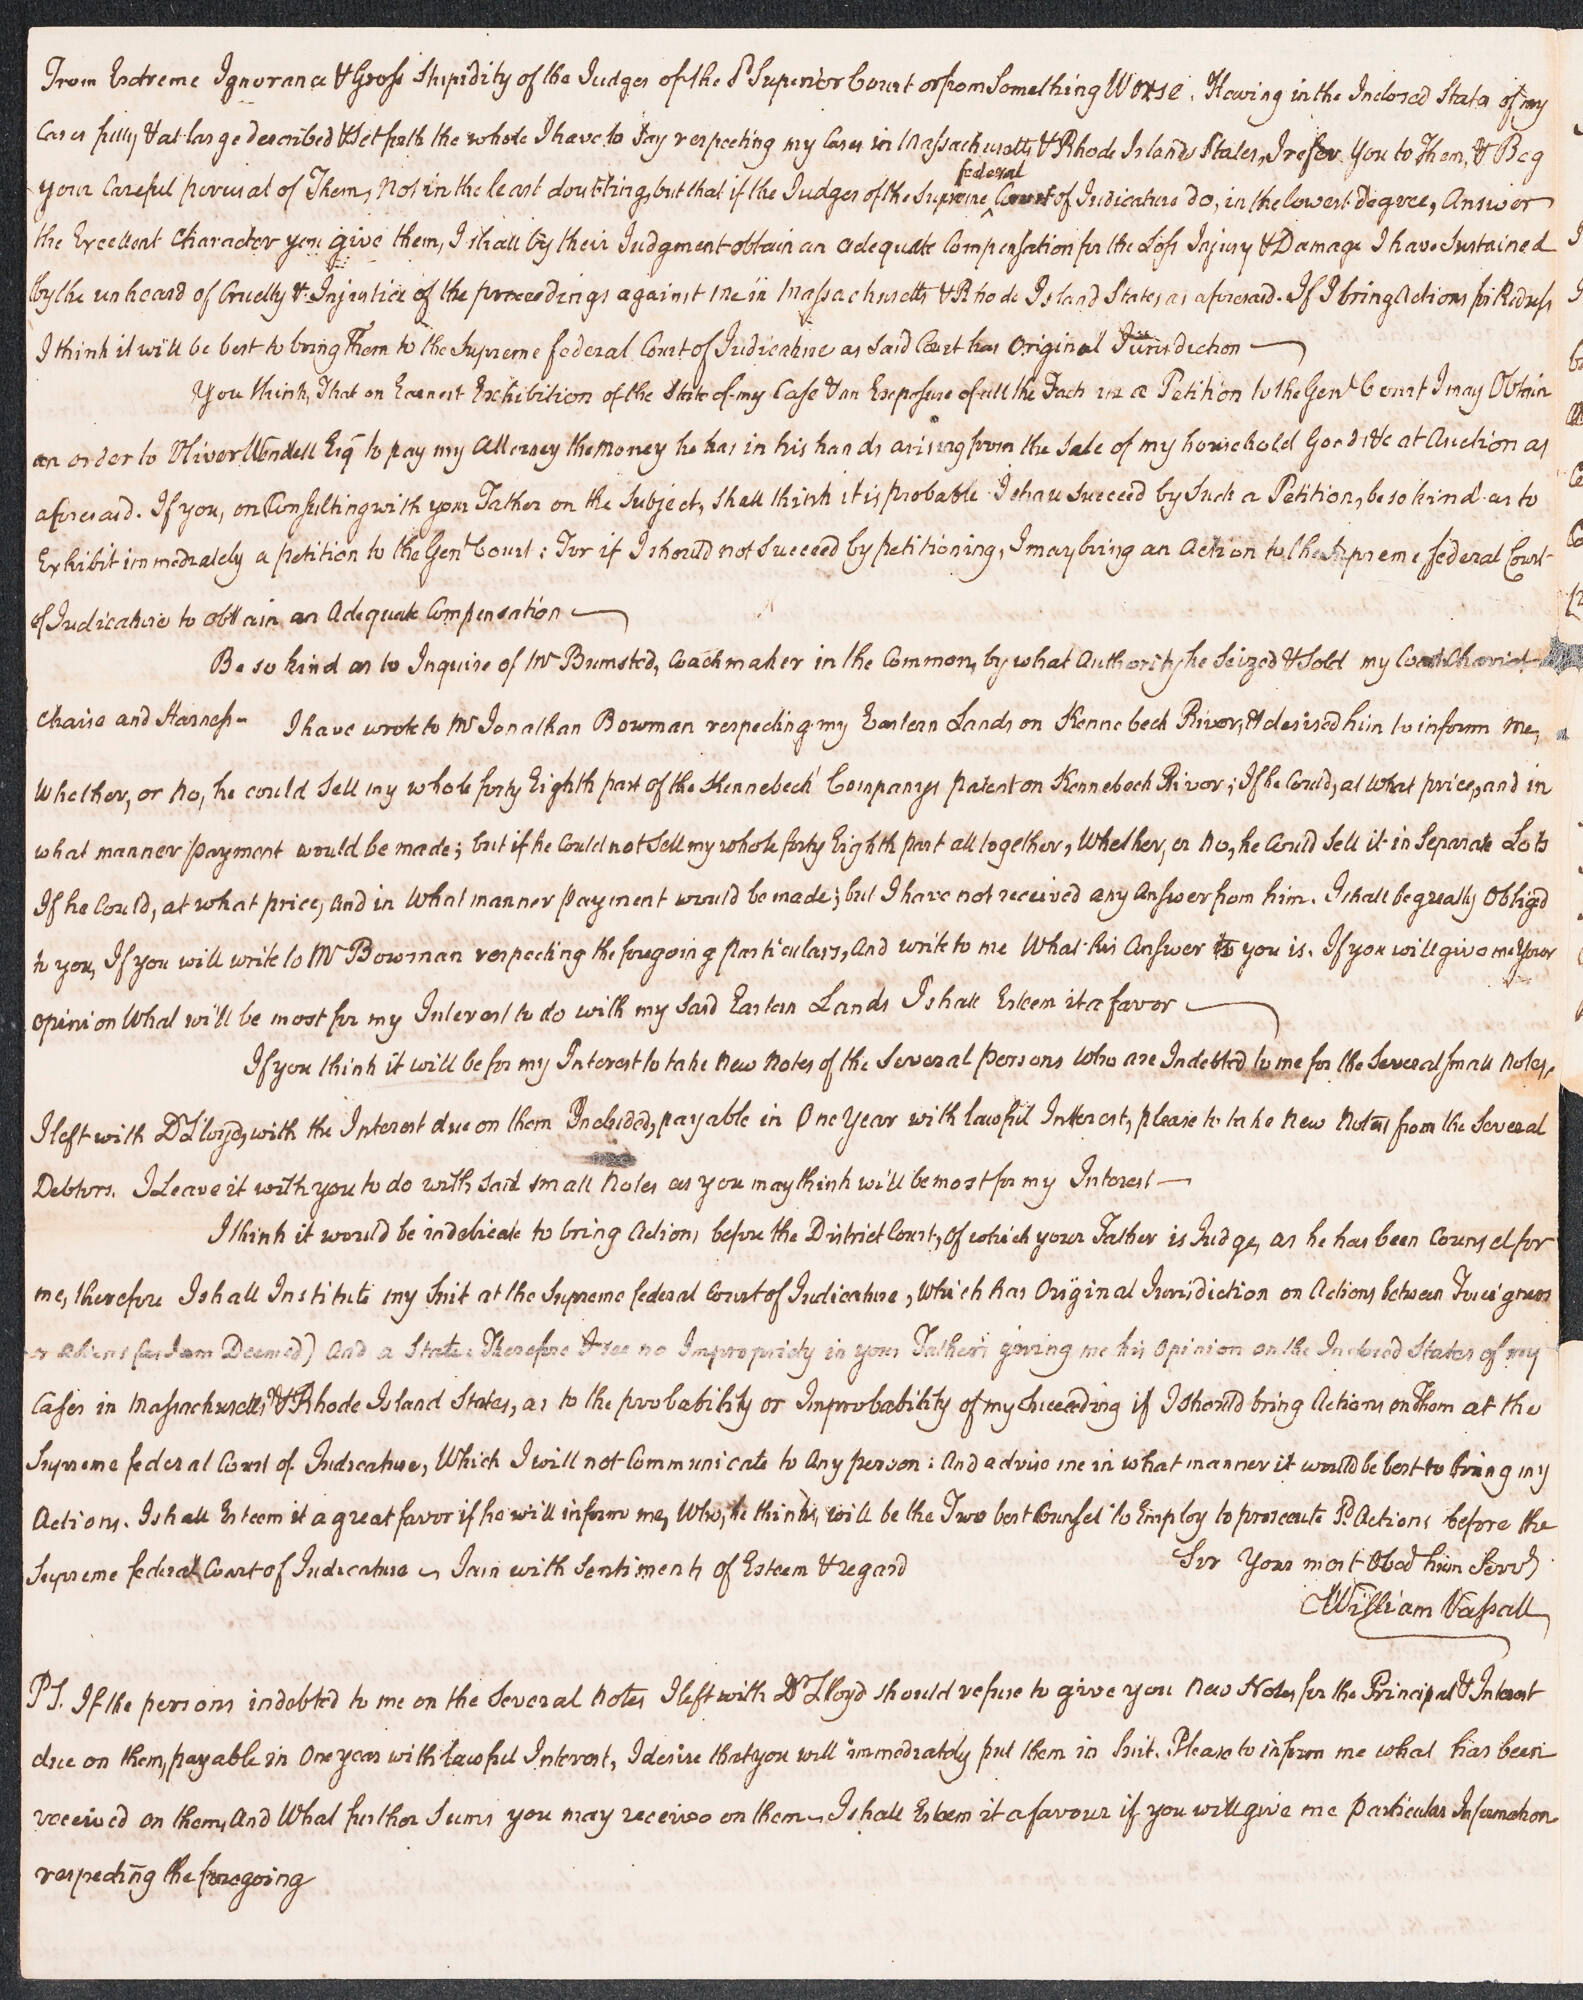 From Extreme Ignorance & Gross Stupidity of the Judges of the sd Superior Court or from Something Worse. Haveing in the Inclosed States of my
Cases fully & at large described & Set forth the whole I have to say respecting my Cases in Massachusetts & Rhode Island States, I refer You to Them, & Beg
your Careful perusal of Them, Not in the least doubting, but that if the Judges of the Supreme federal Court of Judicature do, in the lowest degree, Answer
the Excellent Character you give them, I shall by their Judgment obtain an adequate Compensation for the Loss Injury & Damage I have Sustained
by the unheard of Cruelty & Injustice of the proceedings against me in Massachusetts & Rhode Island States as aforesaid. If I bring Actions for Redress
I think it will be best to bring Them to the Supreme federal Court of Judicature as said Court has Original Jurisdiction
You think, That on Earnest Exhibition of the State of my Case & an Exposure of all the Facts in a Petition to the Genl Court I may Obtain
an order to Oliver Wendell Esq to pay my Attorney the Money he has in his hands arising from the Sale of my household Goods &c at Auction as
aforesaid. If you, on Consulting with your Father on the Subject, shall think it is probable I shall Succeed by Such a Petition, be so kind as to
Exhibit immediately a petition to the Genl Court: For if I should not Succeed by petitioning, I may bring an Action to the Supreme federal Court
of Judicature to obtain an Adequate Compensation
Be so kind as to Inquire of Mr Bumsted, Coachmaker in the Common, by what Authority he Seized & Sold my Coach Chariot
Chaise and Harness - I have wrote to Mr Jonathan Bowman respecting my Eastern Lands on Kennebeck River, & desired him to inform me,
Whether, or No, he could Sell my whole forty Eighth part of the Kennebeck Companys Patent on Kennebeck River; If he Could, at What price, and in
what manner payment would be made; but if he Could not Sell my whole forty Eighth part all together, Whether, or No, he Could Sell it in Separate Lots
If he Could, at what price, and in What manner Payment would be made; but I have not received any Answer from him. I shall be greatly Obliged
to you, If you will write to Mr Bowman respecting the foregoing Particulars, And write to me What his Answer to you is. If you will give me Your
opinion What will be most for my Interest to do with my said Eastern Lands I shall Esteem it a favor
If you think it will be for my Interest to take New Notes of the Several Persons Who are Indebted to me for the Several small Notes,
I left with Dr Lloyd, with the Interest due on them Included, payable in One Year with lawful Interest, please to take New Notes from the Several
Debtors. I Leave it with you to do with said small Notes as you may think will be most for my Interest
I think it would be indelicate to bring Actions before the District Court, Of which your Father is Judge, as he has been Counsel for
me, therefore I shall Institute my Suit at the Supreme federal Court of Judicature, Which has Original Jurisdiction on Actions between Foreigners
or Aliens (as I am Deemed) And a State: Therefore I see no Impropriety in your Father's giving me his Opinion on the Inclosed States of my
Cases in Massachusetts & Rhode Island States, as to the probability or Improbability of my Succeeding if I should bring Actions on Them at the
Supreme federal Court of Judicature, Which I will not Communicate to Any person: And advise me in what manner it would be best to bring my
Actions. I shall Esteem it a great favor if he will inform me, Who, he thinks, will be the Two best Counsel to Employ to prosecute sd Actions before the
Supreme federal Court of Judicature I am with Sentiments of Esteem & regard Sir Your most Obed hum Servt
William Vassall
PS. If the persons indebted to me on the Several Notes I left with Dr Lloyd should refuse to give you New Notes for the Principal & Interest
due on them, payable in One year with lawful Interest, I desire that you will immediately put them in Suit. Please to inform me what has been
received on them, And What further Sums you may receive on them I shall Esteem it a favour if you will give me Particular Information
respecting the foregoing